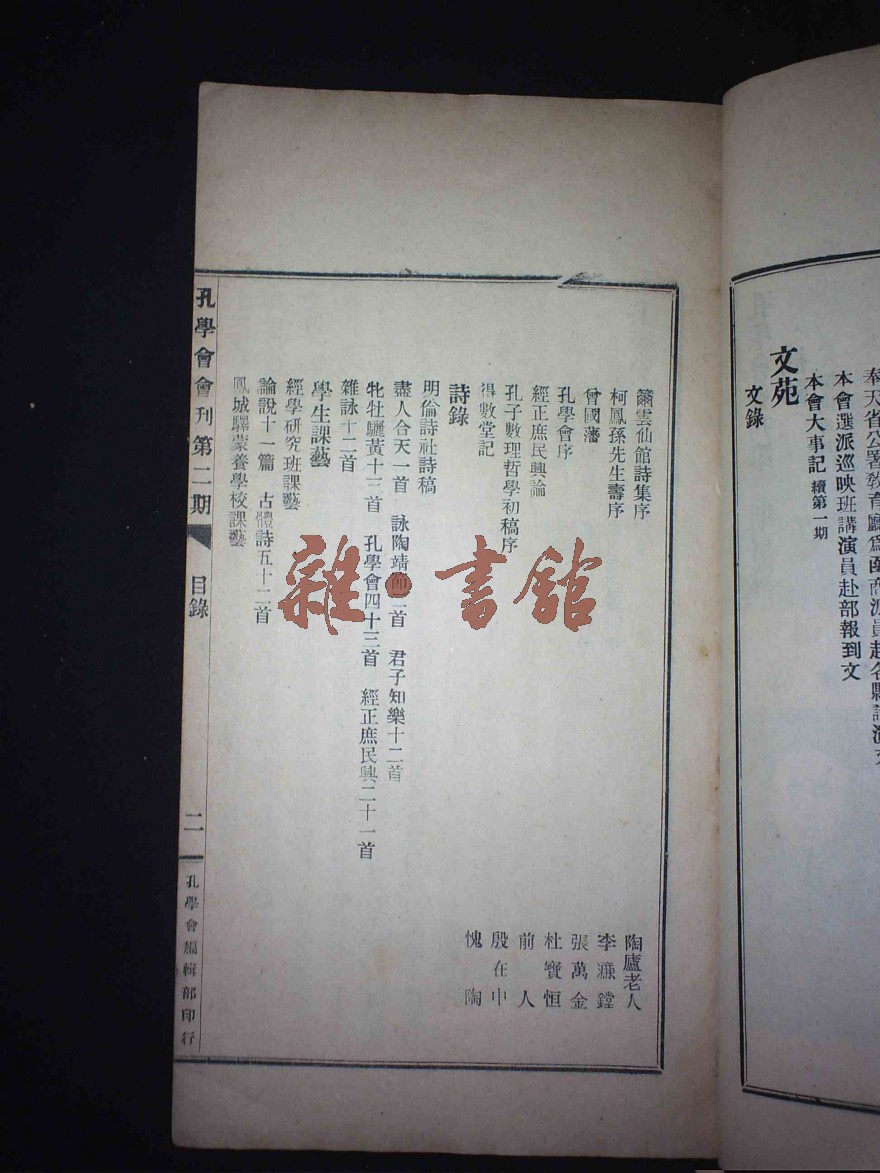 奉天省公署教育廳爲函商派員赴各縣講演文
本會選派巡映班講演員赴部報到文
本會大事記 續第一期
文苑
文錄
籋雲仙館詩集序 陶廬老人
柯鳳孫先生壽序 李濂鏜
曾國藩 張萬金
孔學會序 杜寶恒
經正庶民興論 前人
孔子數理哲學初稿序 殷在中
得數堂記 愧陶
詩錄
明倫詩社詩稿
盡人合天一首 詠陶靖節二首 君子知樂十二首
牝牡驪黃十三首 孔學會四十三首 經正庶民興二十一首
雜詠十二首
學生課藝
經學研究班課藝
論說十一篇 古體詩五十二首
鳳城驛蒙養學校課藝
孔學會會刊第二期 目錄 二 孔學會編輯部印行
雜·書館